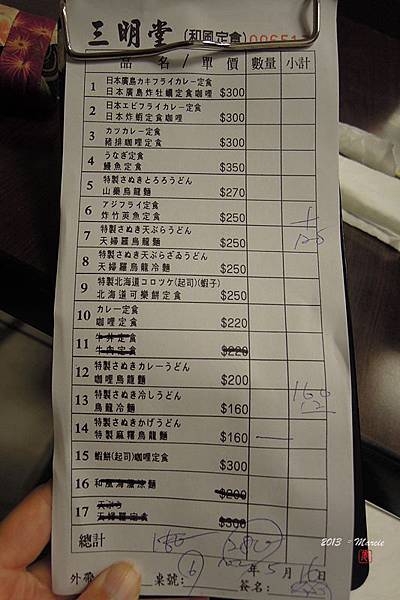 三明堂 (和風定食)
品名/單價 數量 小計
1 日本廣島カキフライカレー定食
日本廣島炸牡蠣定食咖哩 $300
2 日本エビフライカレー定食
日本炸蝦定食咖哩 $300
3 カツカレー定食
豬排咖哩定食 $300
4 うなぎ定食
鰻魚定食 $350
5 特製さぬきとろろうどん
山藥烏龍麵 $270
6 アジフライ定食
炸竹莢魚定食 $250
7 特製さぬき天ぷらうどん
天婦羅烏龍麵 $250
8 特製さぬき天ぷらざるうどん
天婦羅烏龍冷麵 $250
9 特製北海道コロッケ(起司)(蝦子)
北海道可樂餅定食 $250
10 カレー定食
咖哩定食 $220
11 牛丼定食
牛肉定食 $220
12 特製さぬきカレーうどん
咖哩烏龍麵 $200
13 特製さぬき冷しうどん
烏龍冷麵 $160
160
14 特製さぬきかけうどん
特製麻糬烏龍麵 $160
15 蝦餅(起司)咖哩定食 $300
16 $200
17
天婦羅定食 $300
總計
外帶 桌號: 6 年 5 月 16 日
簽名:
2013 - Marcie